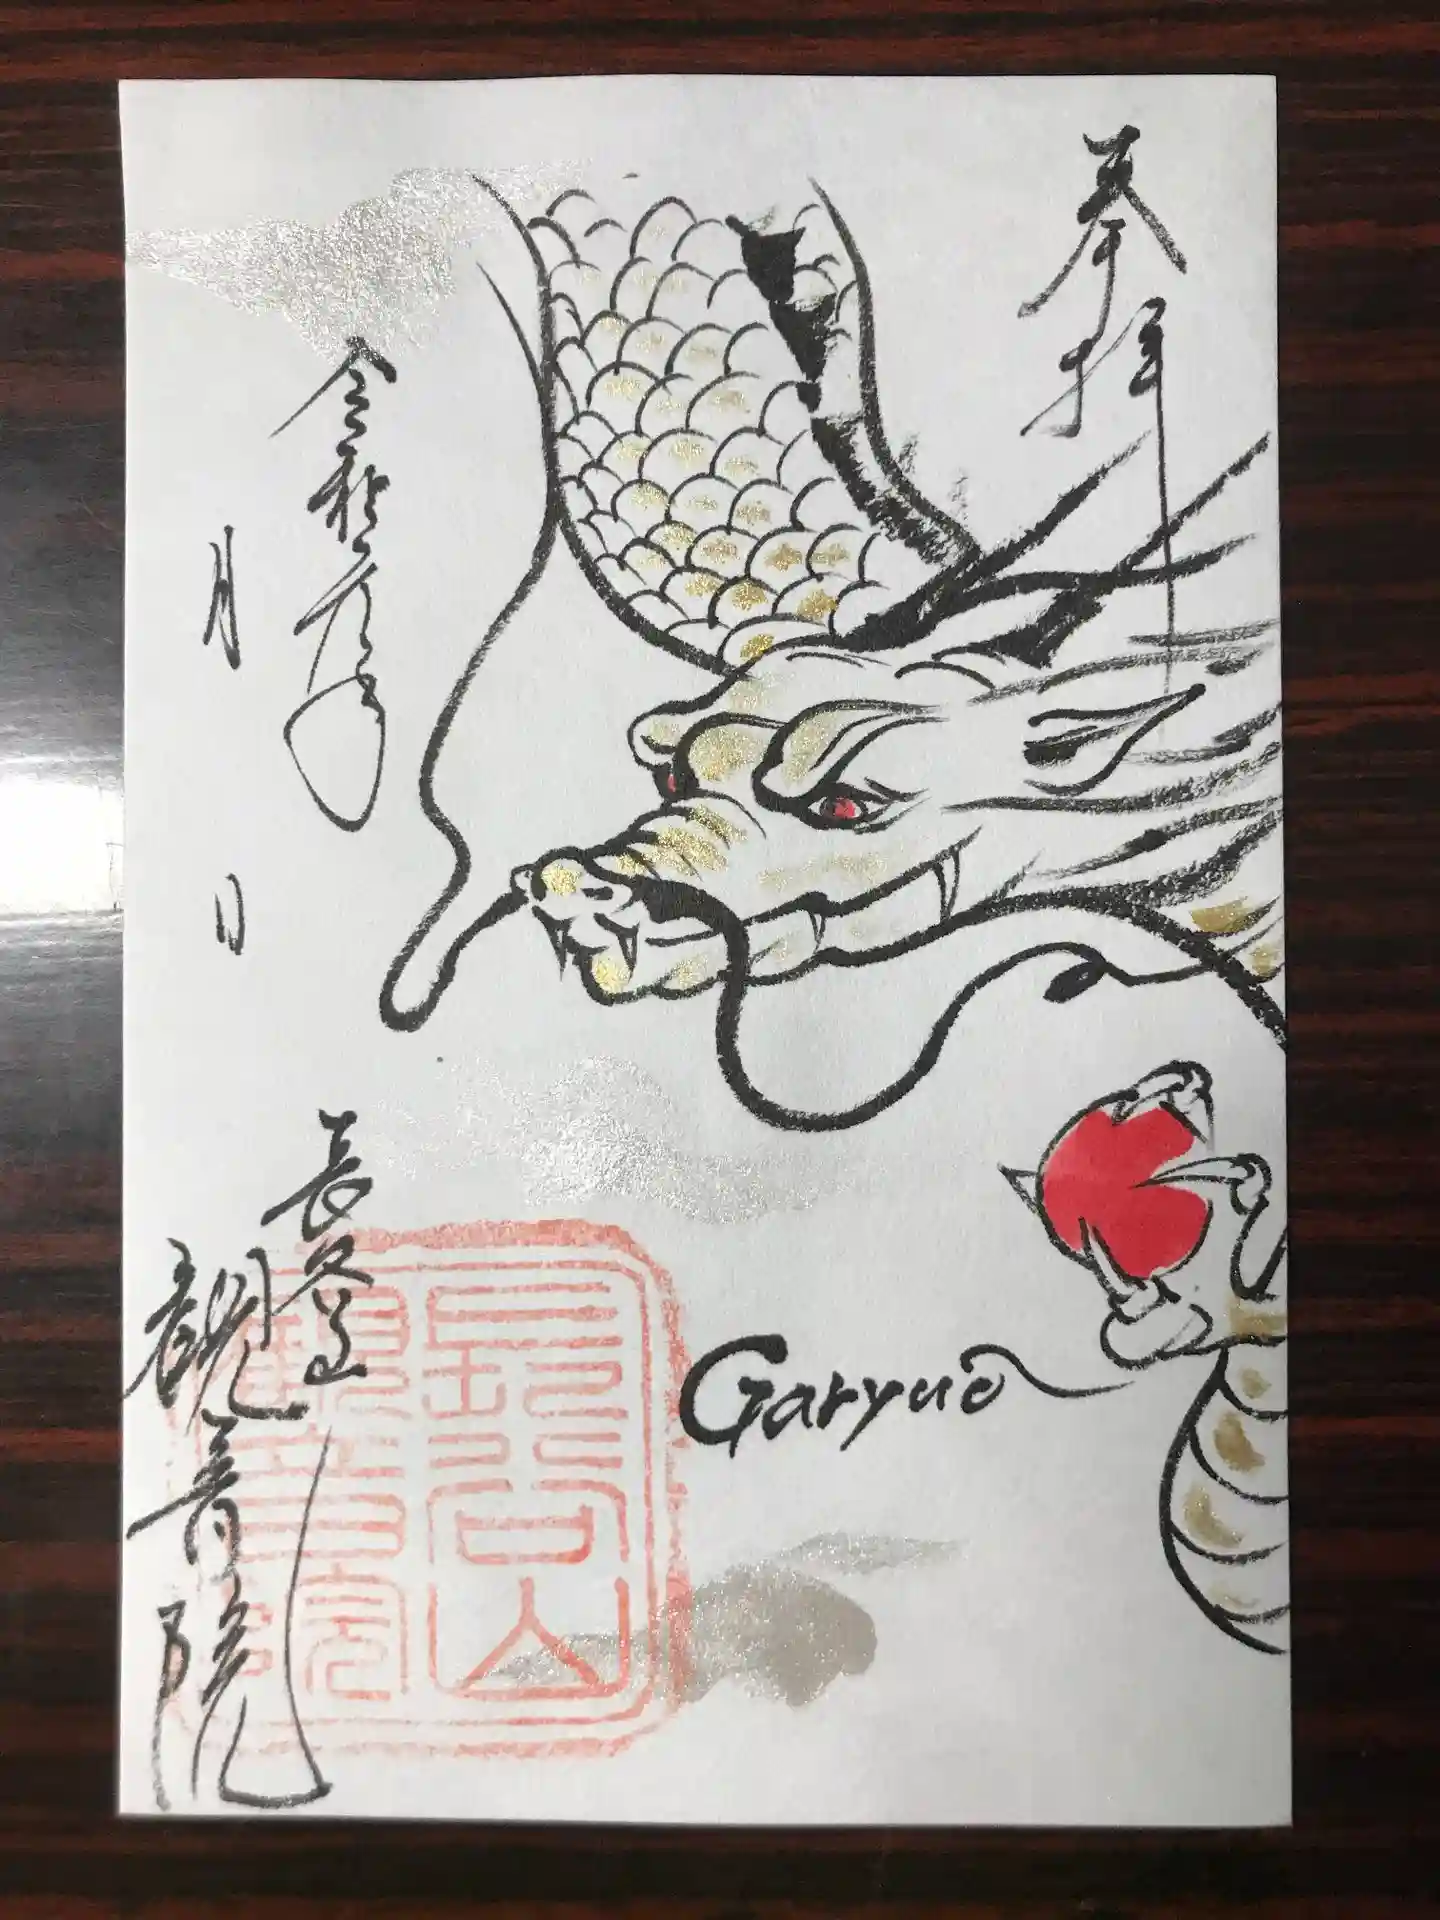 奉拝
令和元年
月 日
Garyuo
長谷山
観音院
長谷山